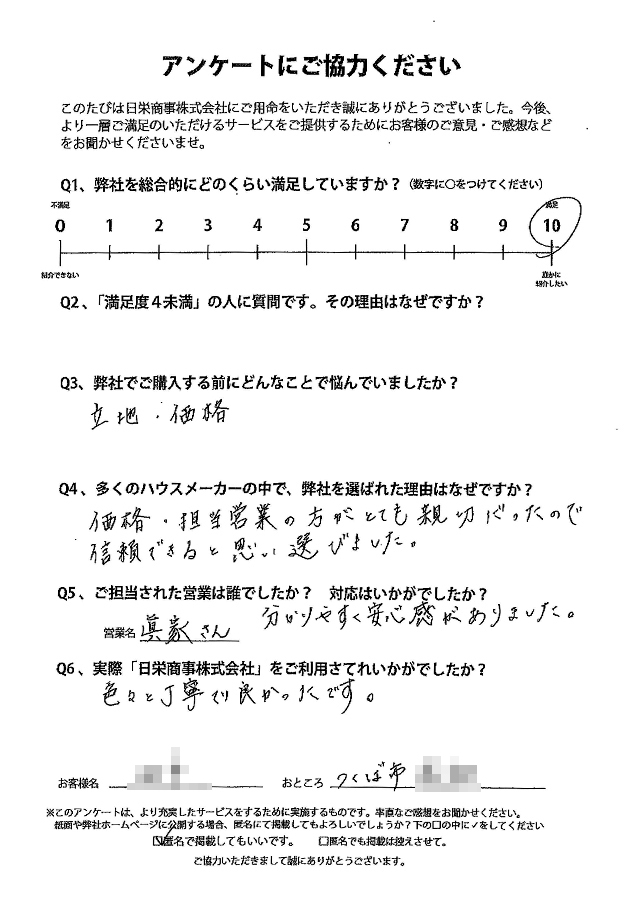 アンケートにご協力ください
このたびは日栄商事株式会社にご用命をいただき誠にありがとうございました。今後、
より一層ご満足のいただけるサービスをご提供するためにお客様のご意見・ご感想など
をお聞かせくださいませ。
Q1、弊社を総合的にどのくらい満足していますか？（数字に○をつけてください）
不満足 満足
0 1 2 3 4 5 6 7 8 9 10
紹介できない 確かに
紹介したい
Q2、「満足度４未満」の人に質問です。その理由はなぜですか？
Q3、弊社でご購入する前にどんなことで悩んでいましたか？
立地・価格
Q4、多くのハウスメーカーの中で、弊社を選ばれた理由はなぜですか？
価格・担当営業の方がとても親切だったので
信頼できると思い選びました。
Q5、ご担当された営業は誰でしたか？　対応はいかがでしたか？
営業名 眞家さん 分かりやすく安心感がありました。
Q6、実際「日栄商事株式会社」をご利用さてれいかがでしたか？
色々と丁寧で良かったです。
お客様名 おところ つくば市
※このアンケートは、より充実したサービスをするために実施するものです。率直なご感想をお聞かせください。
紙面や弊社ホームページに公開する場合、匿名にて掲載してもよろしいでしょうか？下の□の中に✓をしてください
☑匿名で掲載してもいいです。 □匿名でも掲載は控えさせて。
ご協力いただきまして誠にありがとうございます。